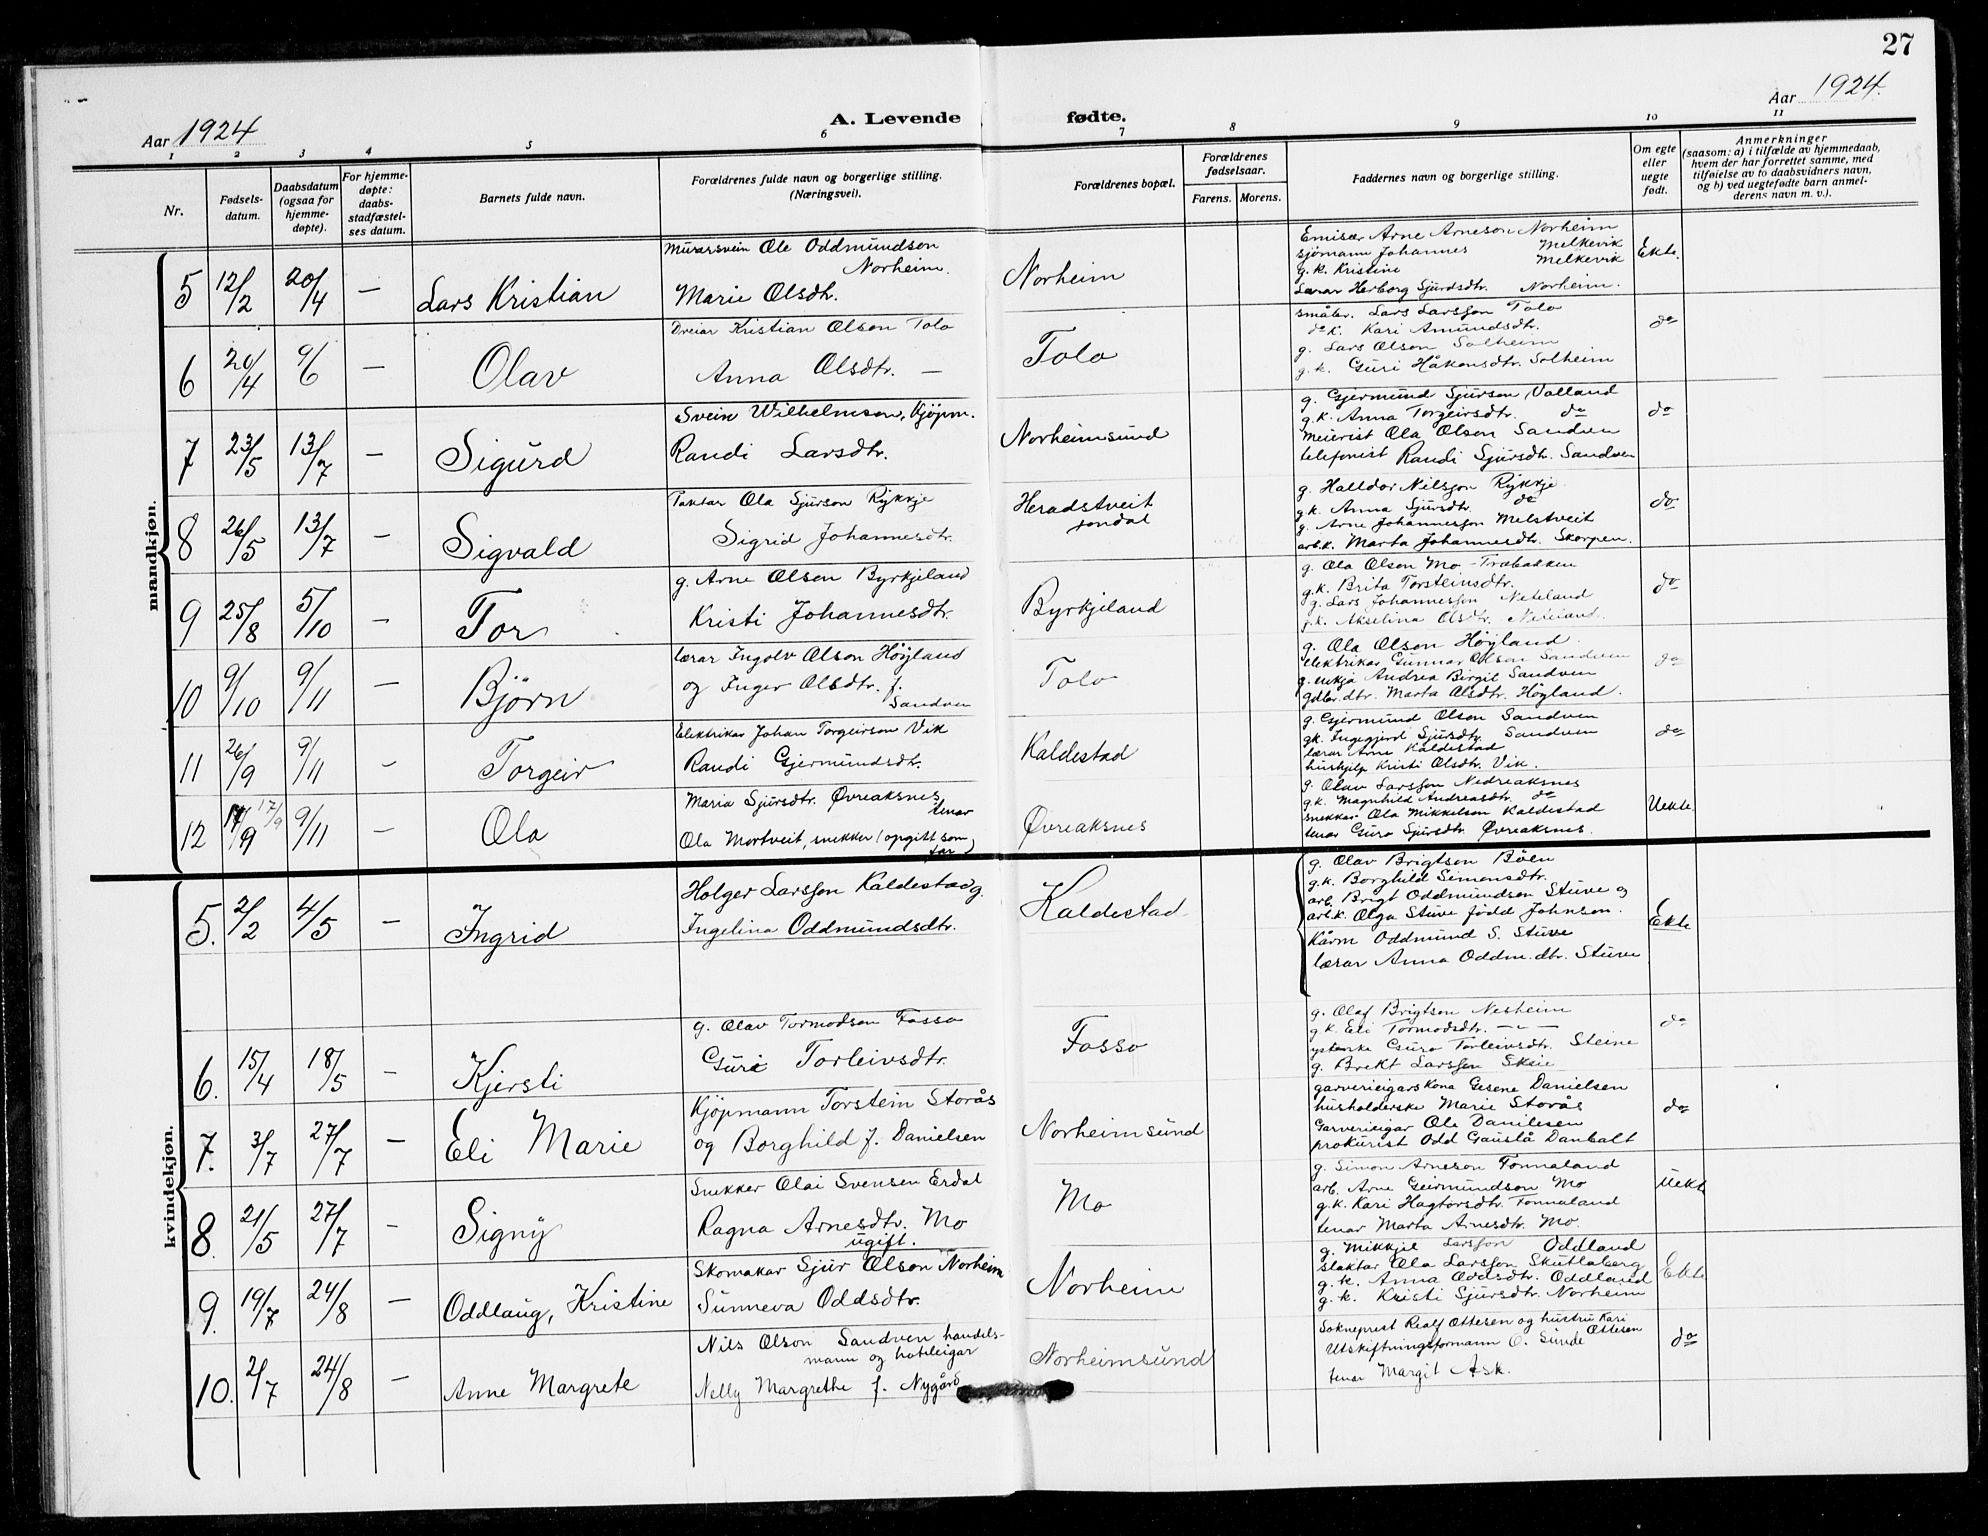 27
Aar 1924
A. Levende fødte.
Aar 1924.
1 2 3 4 5 6 7 8 9 10 11
Nr.
Fødsels-
datum.
Daabsdatum
(ogsaa for
hjemme-
døpte).
For hjemme-
døpte:
daabs-
stadfæstel-
ses datum.
Barnets fulde navn.
Forældrenes fulde navn og borgerlige stilling.
(Næringsvei).
Forældrenes bopæl.
Forældrenes
fødselsaar.
Farens. Morens.
Faddernes navn og borgerlige stilling.
Om egte
eller
uegte
født.
Anmerkninger
(saasom: a) i tilfælde av hjemmedaab,
hvem der har forrettet samme, med
tilføielse av to daabsvidners navn,
og b) ved uegtefødte barn anmel-
derens navn m. v.).
mandkjøn.
5 12/2 20/4 — Lars Kristian
Murarsvein Ole Oddmundson
Norheim.
Marie Olsdtr.
Norheim
Emisær Arne Arneson Norheim
sjømann Johannes Melkevik
g. k. Kristine Melkevik
Lærar Herborg Sjurdsdtr. Norheim.
Ekte.
6 20/4 9/6 — Olav
Dreiar Kristian Olson Tolo
Anna Olsdtr. —
Tolo
småbr. Lars Larsson Tolo
do k. Kari Amundsdtr.
g. Lars Olson Solheim
g. k. Guri Håkonsdtr. Solheim
do
7 23/5 13/7 — Sigurd
Svein Wilhelmson, Kjøpm.
Randi Larsdtr.
Norheimsund
g. Gjermund Sjurson Valland
g.k. Anna Torgeirsdtr. do
meierist Ola Olson Sandven
telefonist Randi Sjursdtr. Sandven
do
8 26/5 13/7 — Sigvald
Ola Sjurson Rykkje
Sigrid Johannesdtr.
Heradstveit
Jondal
g. Halldor Nilsson Rykkje
g.k. Anna Sjursdtr. do
g. Arne Johannesson Melstveit
arb.k. Marta Johannesdtr. Skorpen.
do
9 25/8 5/10 — Tor
g. Arne Olson Byrkjeland
Kristi Johannesdtr.
Byrkjeland
g. Ola Olson Mo - Træbakken
g.k. Brita Torsteinsdtr.
g. Lars Johannesson Neteland
g.k. Akselina Olsdtr.
do
10 9/10 9/11 — Bjørn
lærar Ingolv Olson Høyland
og Inger Olsdtr. f.
Sandven
Tolo
g. Ola Olson Høyland.
elektrikar Gunnar Olson Sandven
g. enkja Andrea Birgit Sandven
gdbr. dtr. Marta Olsdtr. Høyland.
do
11 26/9 9/11 — Torgeir
Elektrikar Johan Torgeirson Vik
Randi Gjermundsdtr.
Kaldestad
g. Gjermund Olson Sandven
gk. Ingegjerd Sjursdtr. Sandven
lærar Arne Kaldestad
hushjelp Kristi Olsdtr. Vik.
do
12 17/9 17/9 9/11 — Ola
Maria Sjursdtr. Øvreaksnes,
tenar
Ola Mortveit, snekker (opgitt som
far)
Øvreaksnes
g. Olav Larsson Nedreaksnes
g.k. Magnhild Andreasdtr. do
snekkar Ola Mikkelson Kaldestad
tenar Guro Sjursdtr. Øvreaksnes.
Uekte.
kvindekjøn.
5. 2/2 4/5 — Ingrid
Holger Larsson Kaldestad g.
Ingelina Oddmundsdtr.
Kaldestad
g. Olav Brigtson Bøen
g.k. Borghild Simonsdtr.
arb. Brigt Oddmundson Stuve og
arb.k. Olga Stuve fødd Johnson.
Kårm Oddmund S. Stuve
lærar Anna Oddm. dtr. Stuve
Ekte
6. 15/4 18/5 — Kjersti
g. Olav Tormodson Fosso
Guri Torleivsdtr.
Fosso
g. Olaf Brigtson Nesheim
g k. Eli Tormodsdtr. — " —
Guro Torleivsdtr. Steine
g. Brekt Larsson Skeie
do
7. 3/7 27/7 — Eli Marie
Kjøpmann Torstein Storås
og Borghild f. Danielsen
Norheimsund
garverieigars kona Gesene Danielsen
husholderske Marie Storås
Garverieigar Ole Danielsen
prokurist Odd Gaustå Danbolt
do
8. 21/5 27/7 — Signy
Snekker Olai Svensen Erdal
Ragna Arnesdtr. Mo
ugift.
Mo
g. Simon Arneson Tonnaland
arb. Arne Geirmundson Mo
g.k. Kari Hagtorsdtr. Tonnaland
tenar Marta Arnesdtr. Mo.
Uekte
9. 19/7 24/8 — Oddlaug, Kristine
Skomakar Sjur Olson Norheim
Sunneva Oddsdtr.
Norheim
g. Mikkjel Larsson Oddland
slaktar Ola Larsson Skutlaberg
g.k. Anna Oddsdtr. Oddland
g.k. Kristi Sjursdtr. Norheim
Ekte
10. 2/7 24/8 — Anne Margrete
Nils Olson Sandven handels-
mann og hoteleigar
Nelly Margrethe f. Nygård
Norheimsund
Sokneprest Realf Ottesen og hustru Kari
Ottesen
Utskiftningsformann O. Sunde
tenar Margit Ask.
do